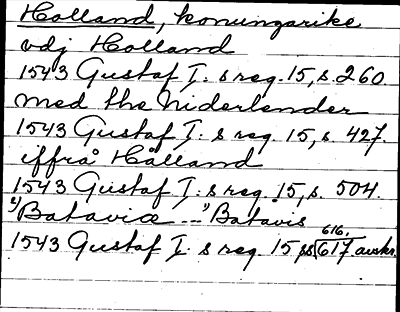 Holland, konungarike
udj Holland
1543 Gustaf I: s reg. 15, s. 260.
med the Niderlender
1543 Gustaf I: s reg. 15, s. 427.
iffrå Hålland
1543 Gustaf I: s reg. 15, s. 504.
"Bataviæ --- "Batavis
616.
1543 Gustaf I: s reg. 15 ss 617 avskr.